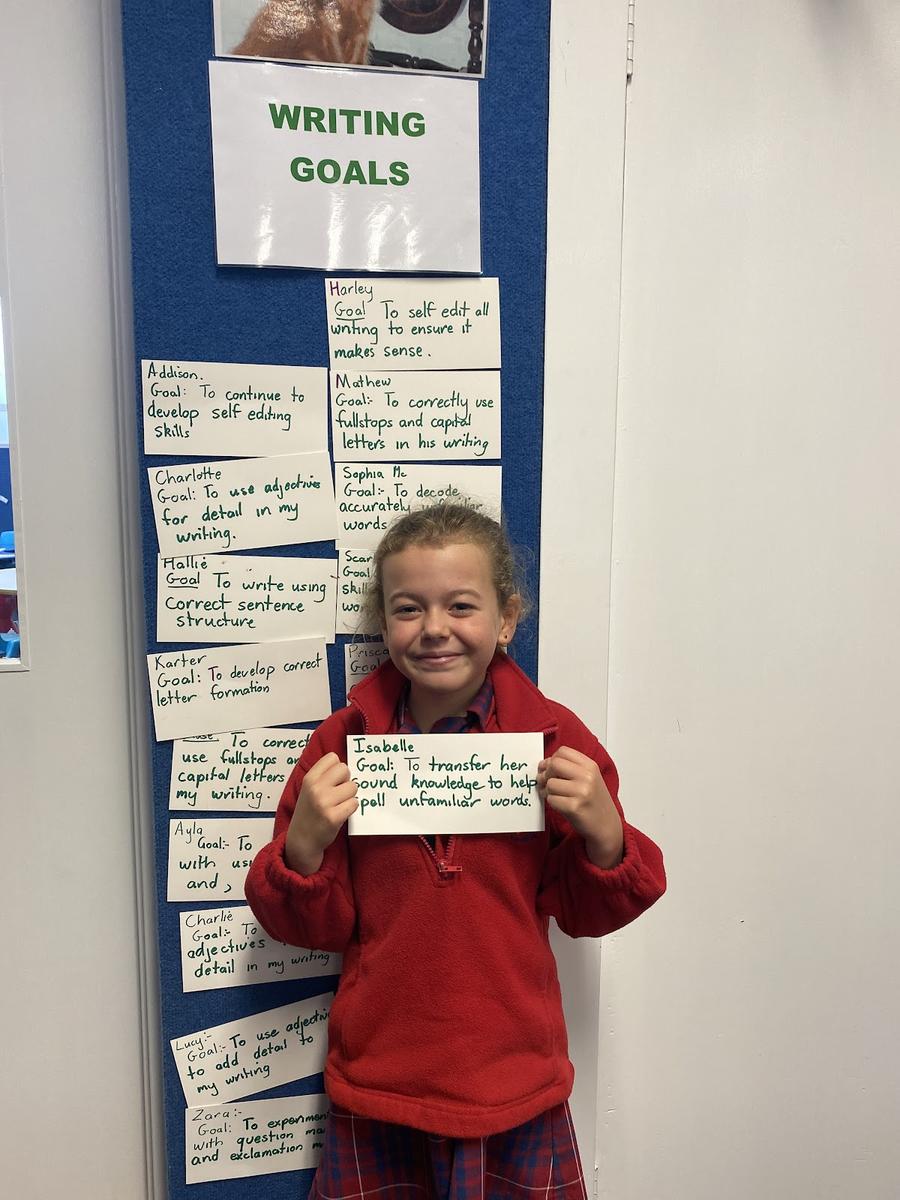 WRITING
GOALS
Harley
Goal To self edit all
writing to ensure it
makes sense.
Addison.
Goal: To continue to
develop self editing
skills
Mathew
Goal:- To correctly use
fullstops and capital
letters in his writing
Charlotte
Goal: To use adjectives
for detail in my
writing.
Sophia Mc
Goal:- To decode
accurately unfamiliar
words
Hallie
Goal To write using
correct sentence
structure
Goal
Karter
Goal: To develop correct
letter formation
Goal
To correct
use fullstops
capital letters
my writing.
Isabelle
Goal: To transfer her
sound knowledge to help
spell unfamiliar words.
Ayla
Goal:- To
with
and ,
Charlie
Goal:- To
adjectives
detail in my writing
Lucy:-
Goal:- To use
to add detail to
my writing
Zara:-
Goal: To
with question
and exclamation